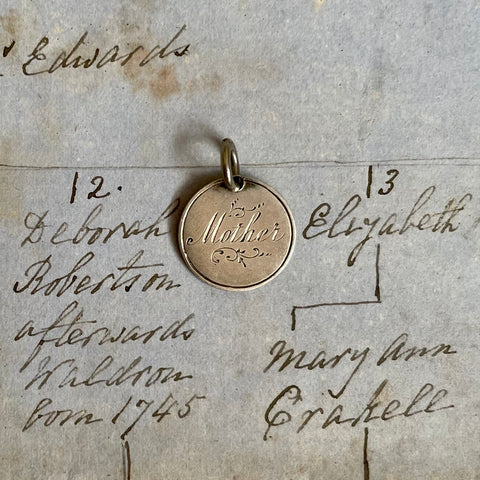 Edwards
12.
Deborah
Robertson
afterwards
Waldron
born 1745
Mother
13
Elizabeth
Mary Ann
Crakell